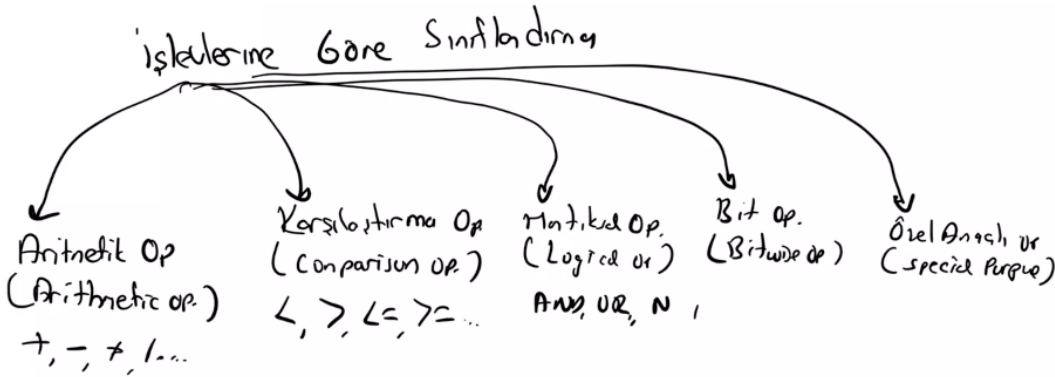 işlevlerine Göre Sınıflandırma
Aritmetik Op
(Arithmetic op.)
+, -, *, /....
Karşılaştırma Op
(Comparison op.)
<, >, <=, >= ...
Mantıksal Op.
(Logical op)
AND, OR, N ,
Bit op.
(Bitwise op)
Özel Amaçlı op
(special purpose)